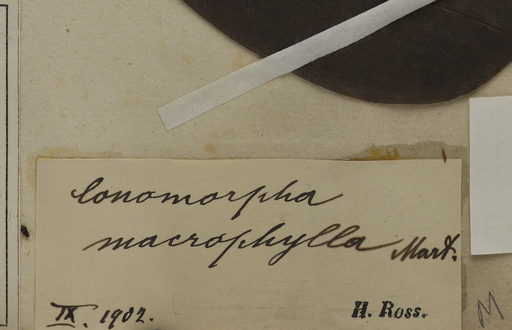 Conomorpha
macrophylla Mart.
IX. 1902. H. Ross.
M